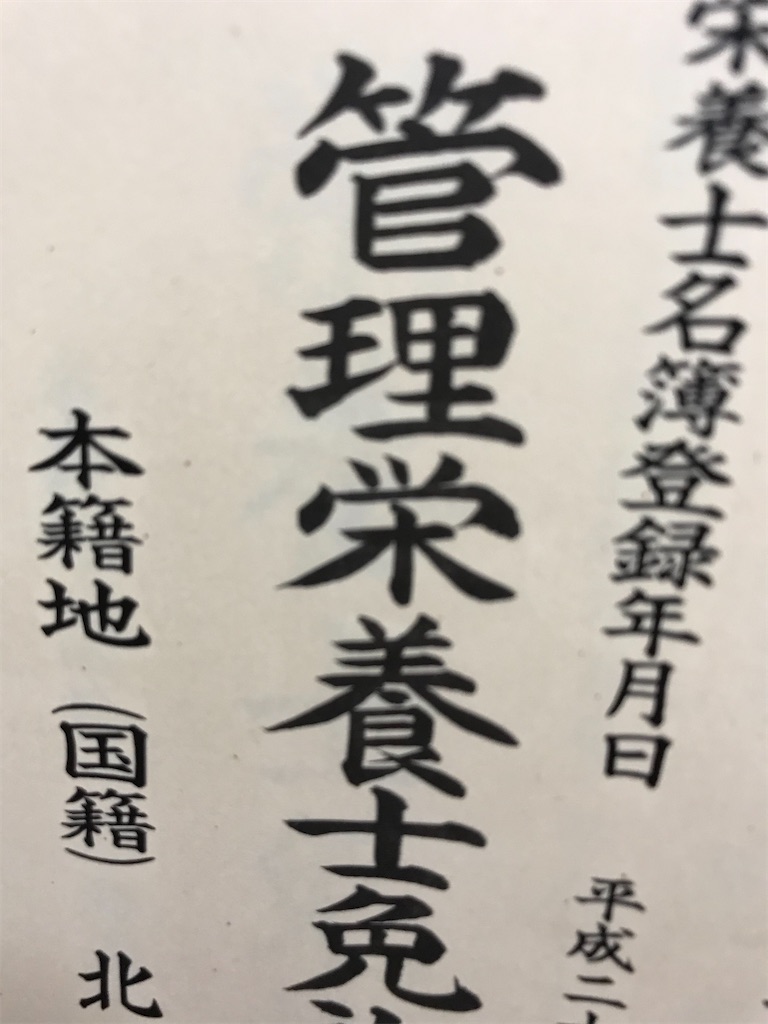 栄養士名簿登録年月日 平成二
管理栄養士免
本籍地（国籍） 北